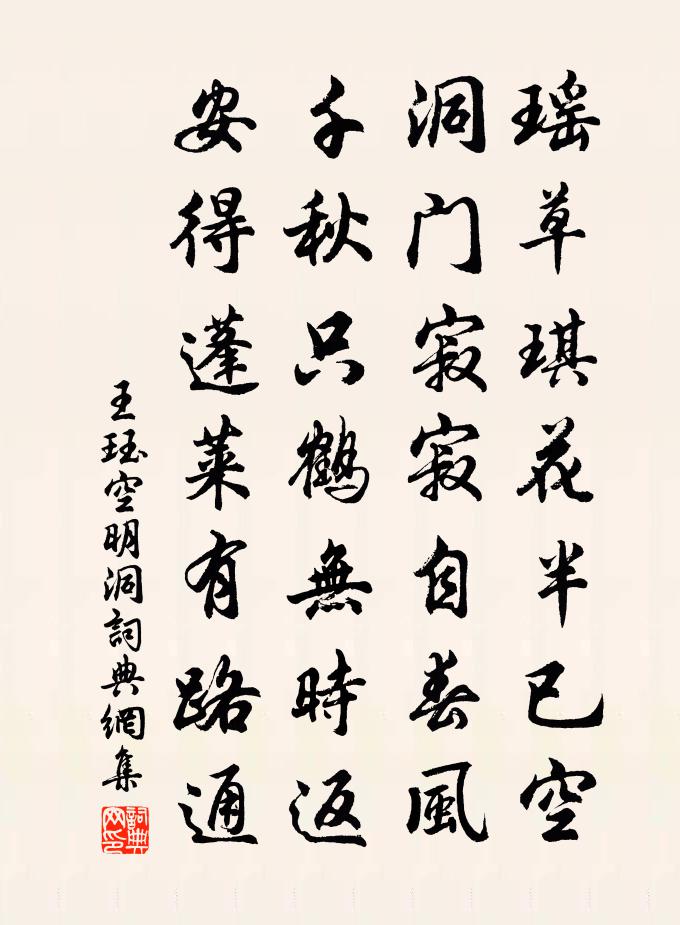 瑶草琪花半已空
洞门寂寂自春風
千秋只鶴無時返
安得蓬莱有路通
王珏空明洞詞典網集
詞典網印